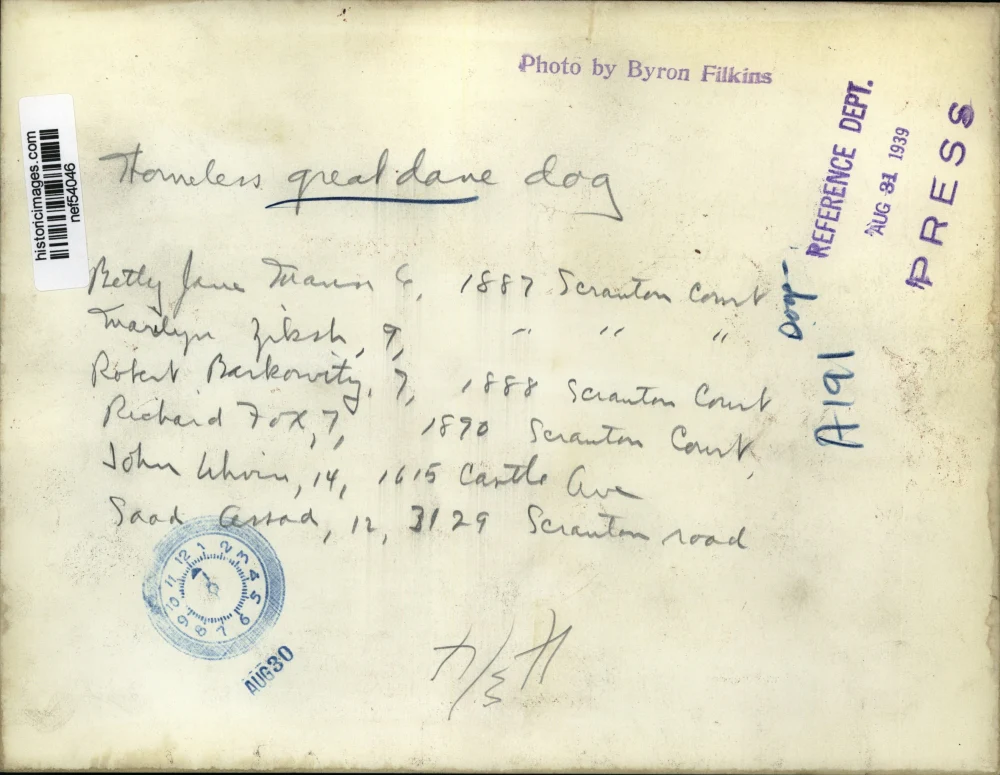 Photo by Byron Filkins
REFERENCE DEPT.
AUG 31 1939
PRESS
historicimages.com
nef54046
Homeless great dane dog
Betty Jane 6, 1887 Scranton Court
Marilyn 9, " " "
Robert Berkowitz, 7, 1888 Scranton Court
Richard Fox, 7, 1890 Scranton Court,
John 14, 1615 Castle Ave
Saad Assad, 12, 3129 Scranton road
A191
12 1 2 3 4 5 6 7 8 9 10 11
AUG 30